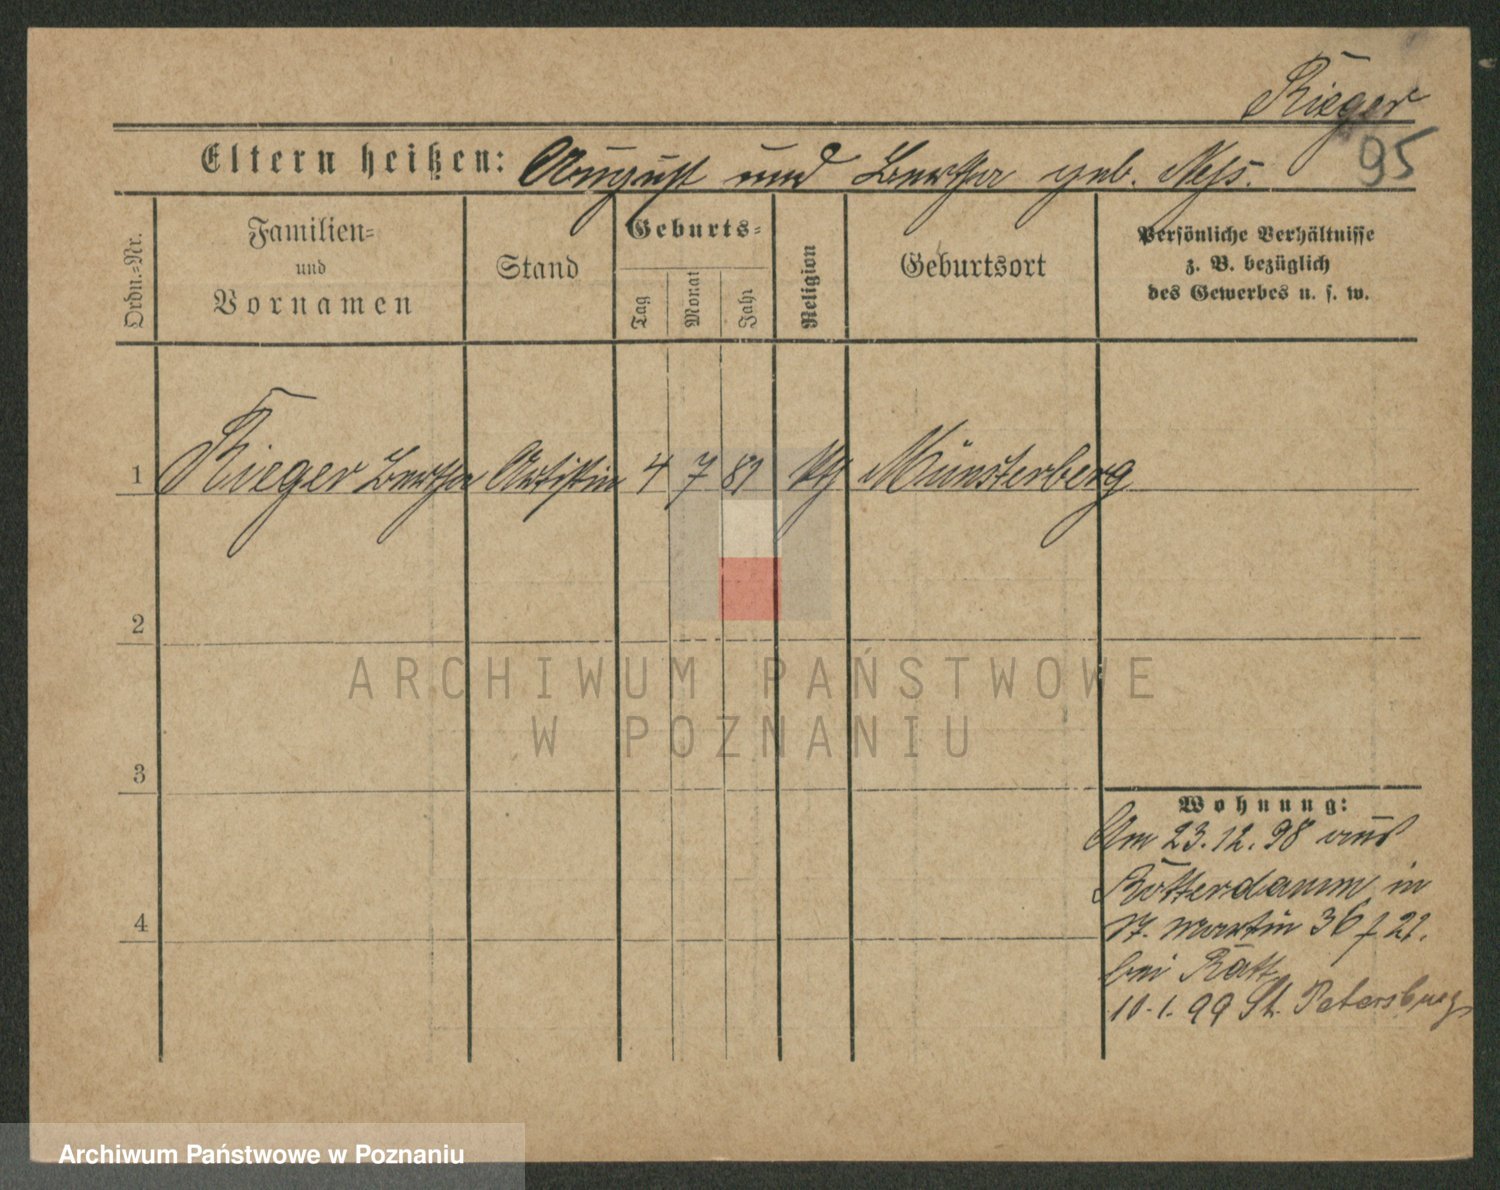 Rieger
95
Eltern heißen: August und Bertha geb.
Ordn.=Nr.
Familien=
und
Vornamen
Stand
Geburts=
Tag
Monat
Jahr
Religion
Geburtsort
Persönliche Verhältnisse
z. B. bezüglich
des Gewerbes u. s. w.
1 Rieger Bertha Artistin 4 7 81 kth Münsterberg
2
ARCHIWUM PAŃSTWOWE
W POZNANIU
3
Wohnung:
Am 23.12.98 aus
Rotterdamm in
4
St. Martin 36 f 21.
bei Ratt
10.1.99 St. Petersburg
Archiwum Państwowe w Poznaniu